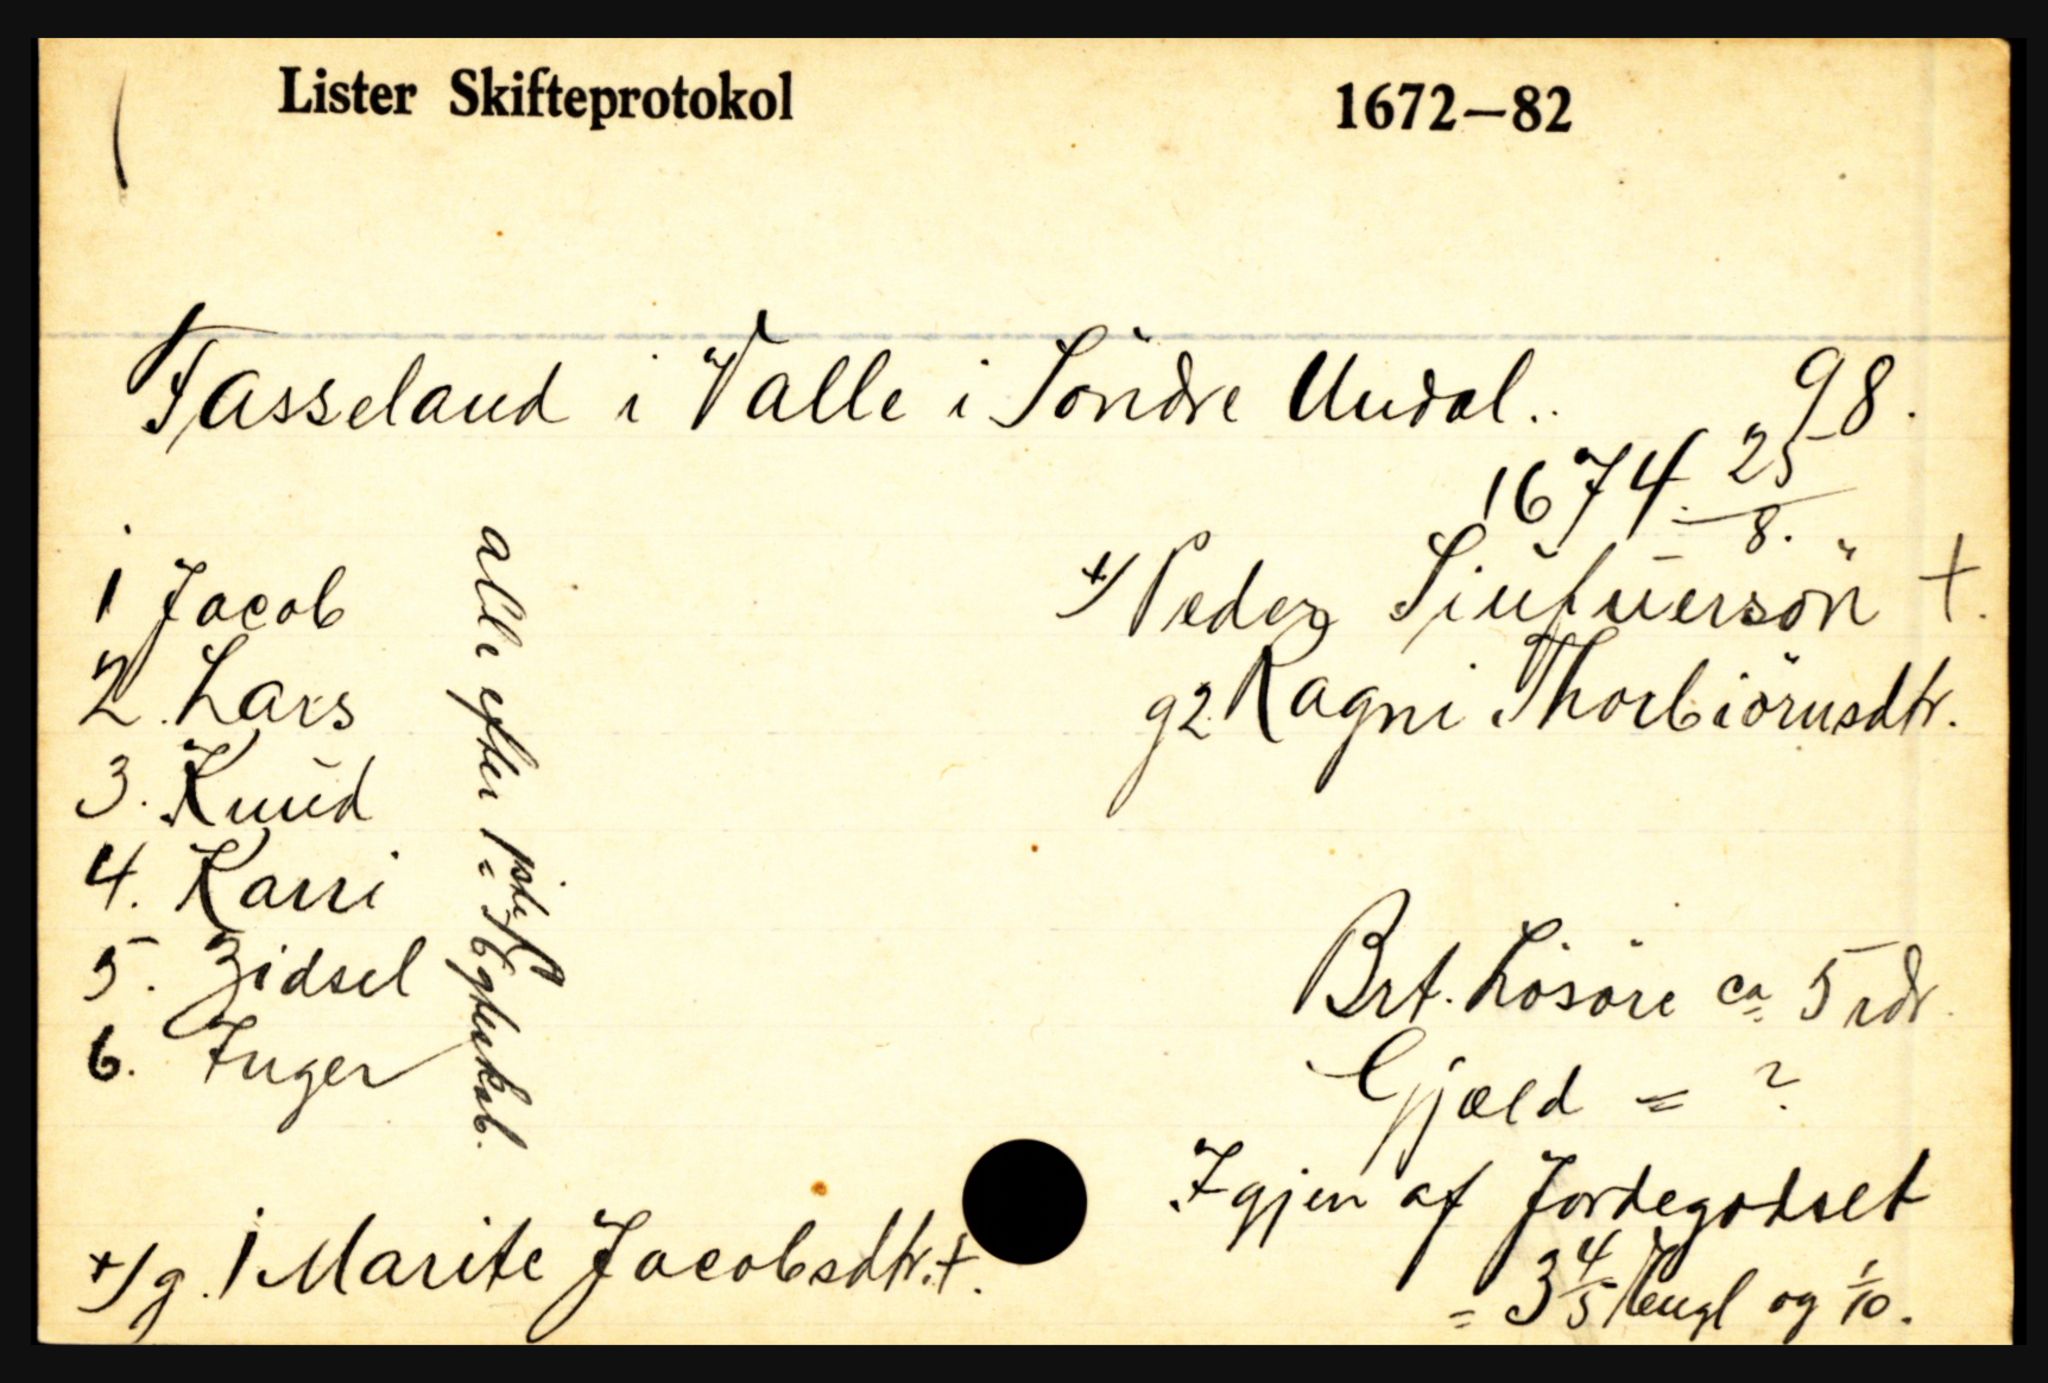 Lister Skifteprotokol 1672–82
Fasseland i Valle i Söndre Undal. 98.
1674 25/8.
+/ Peder Siufuersön +.
g2. Ragni Thorbiörnsdtr.
1 Jacob
2. Lars
3. Knud
4. Karri
5. Zidsel
6. Inger
alle efter 1ste Egteskab.
Brt. Lösöre ca 5 rdr.
Gjæld = ?
Igjen af Jordegodset
= 3 4/5 Engl og 1/10.
+/ g. 1 Marite Jacobsdtr. +.